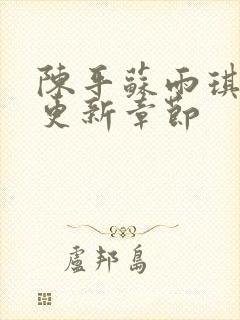 陳平蘇雨琪
更新章節
盧邦島